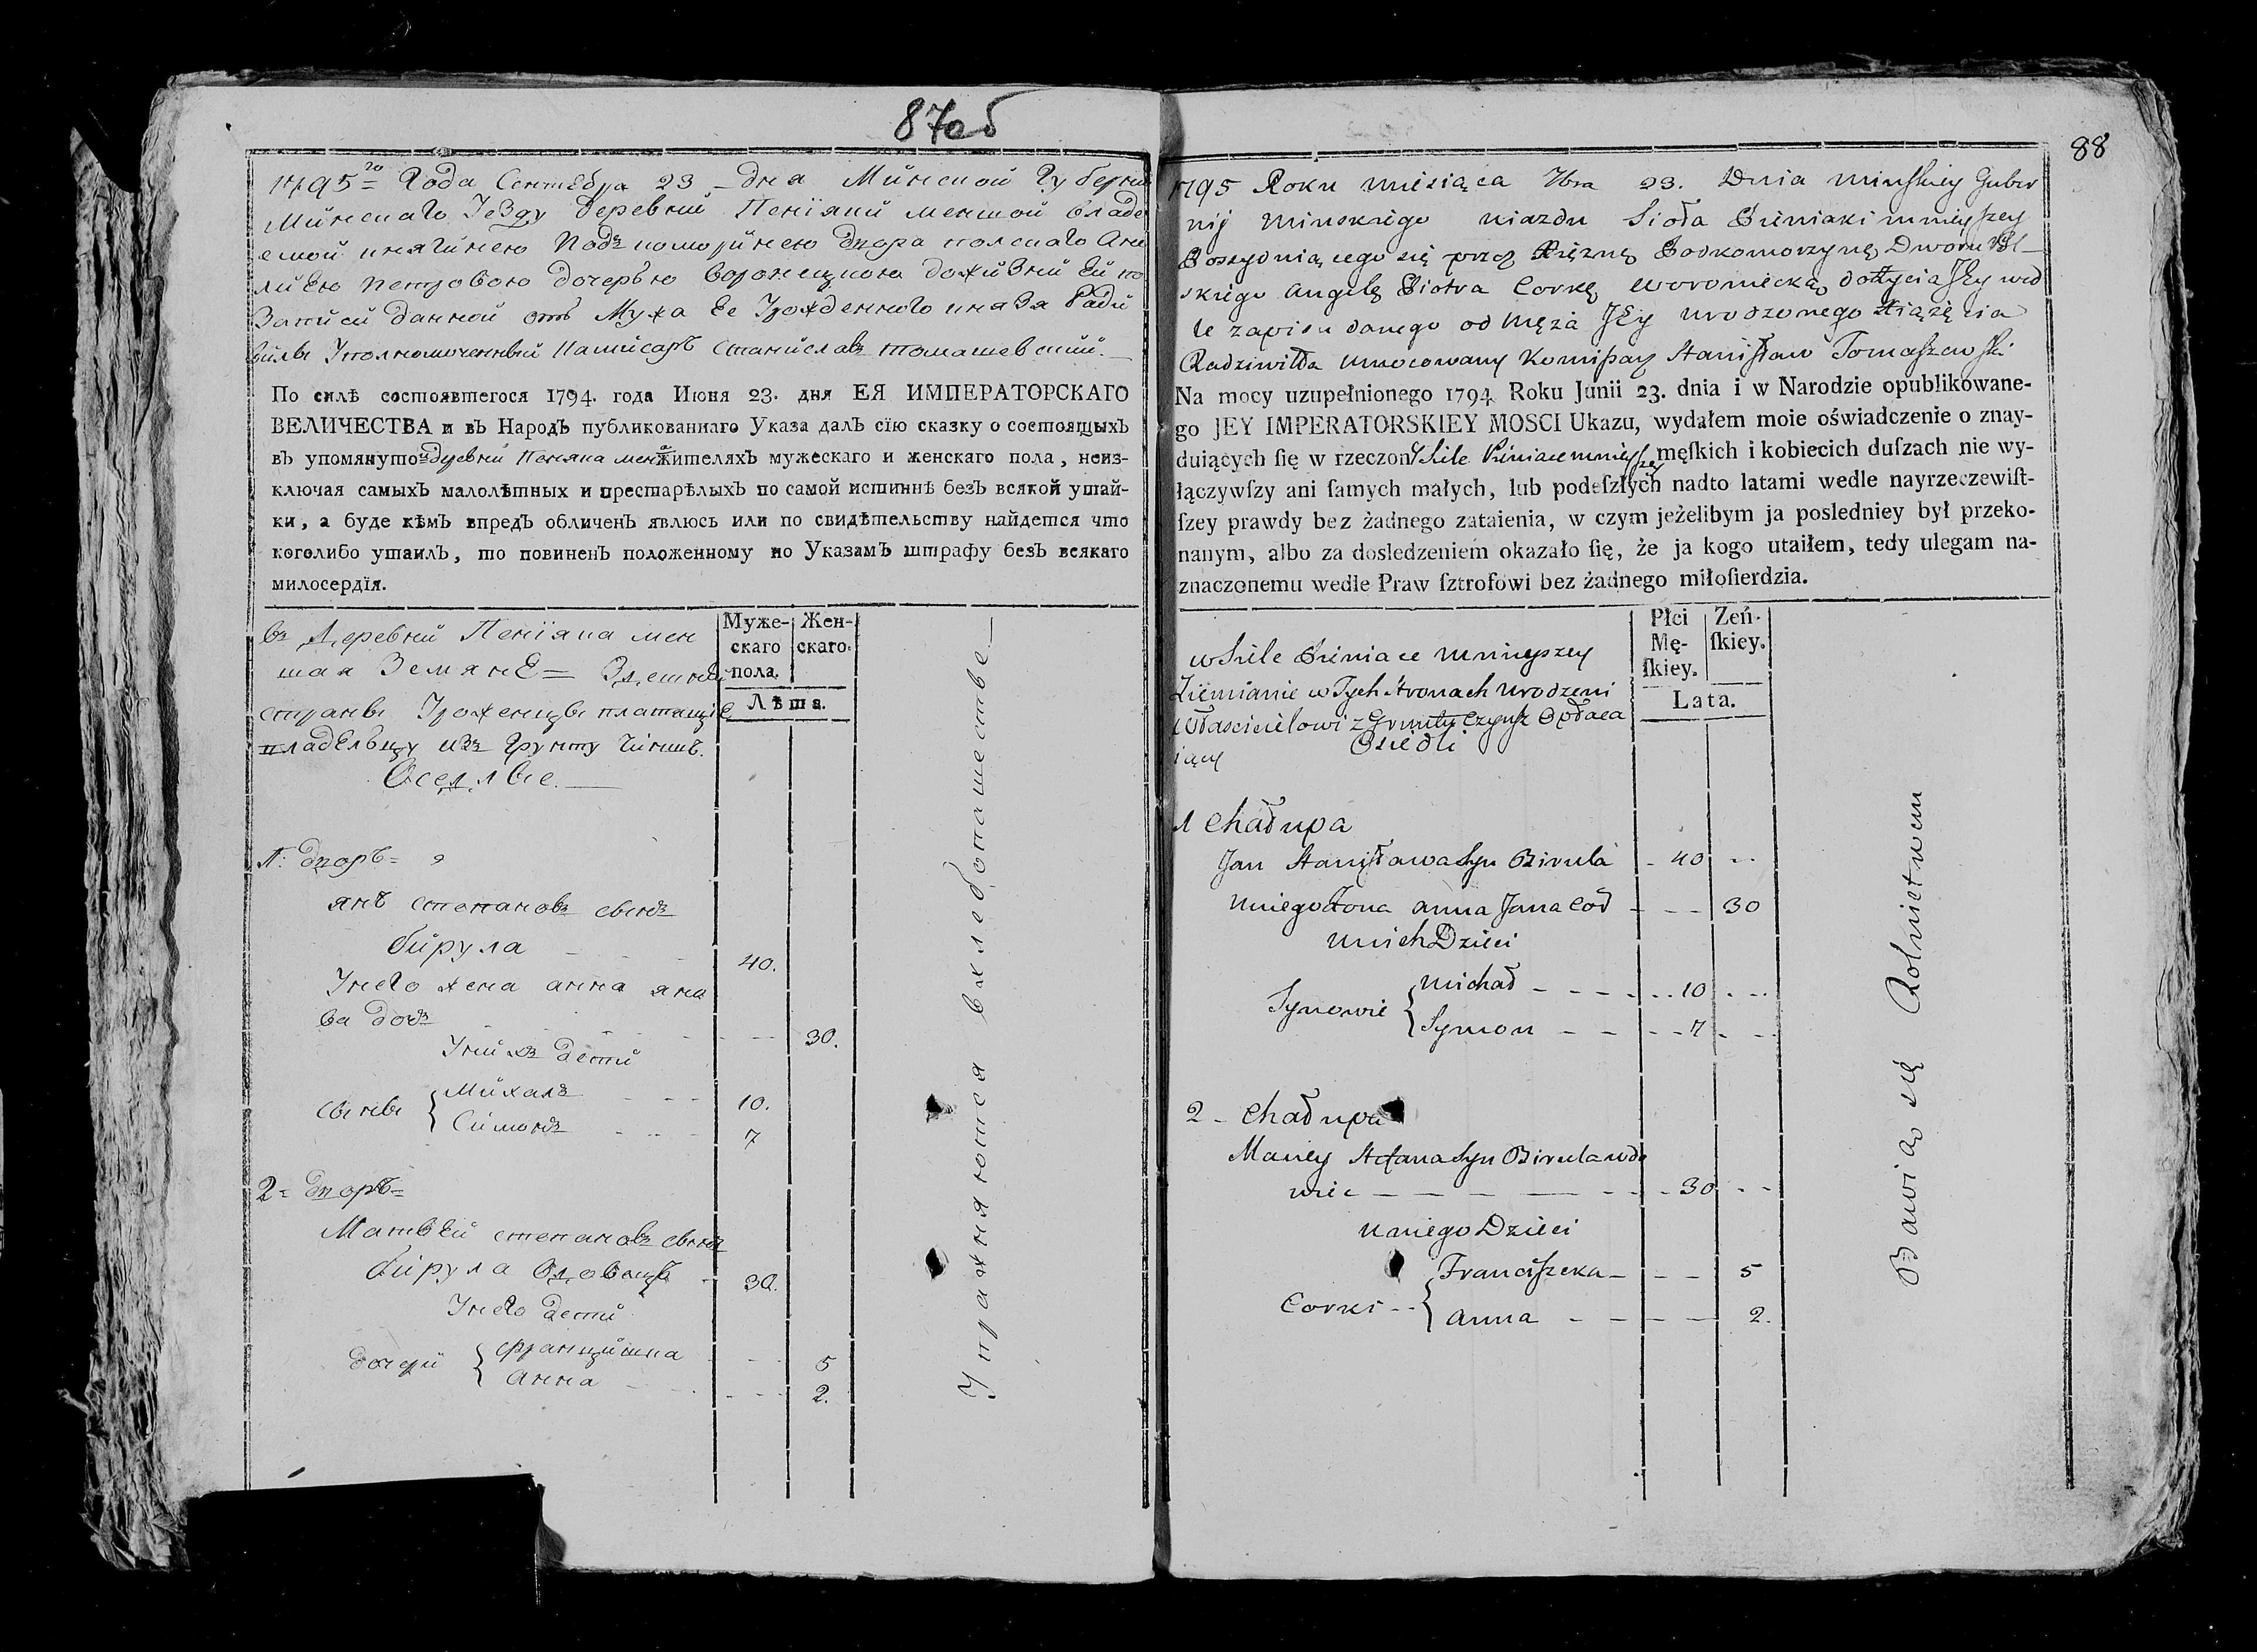 87об
1795го Года Сентебра 23 дня Минской Губерни
Минскаго Уезду Деревни Пенїяки меншой владе
емой княгинею Подкоморинею двора полскаго Ане
лиею Петровою дочерью Воронецкою доживни ей по
Записи данной отъ Мужа Ее Урожденного князя Ради
вилы Уполномоченный Камисаръ Станиславъ Томашевский.
По силѣ состоявшегося 1794. года Июня 23. дня ЕЯ ИМПЕРАТОРСКАГО
ВЕЛИЧЕСТВА и въ Народъ публикованнаго Указа далъ сїю сказку о состоящыхъ
въ упомянутой деревни Пенїяка мен жителяхъ мужескаго и женскаго пола, неиз-
ключая самыхъ малолѣтныхъ и престарѣлыхъ по самой истиннѣ безъ всякой утай-
ки, а буде кѣмъ впредъ обличенъ явлюсь или по свидѣтельству найдется что
коголибо утаилъ, то повиненъ положенному по Указамъ штрафу безъ всякаго
милосердїя.
въ Деревни Пенїяка мен
шая Земяне Здешней
страны Уроженцы платящие
владельцу изъ Грунту Чиншъ.
Оселлые.
Муже-
скаго
пола.
Жен-
скаго.
Лѣта.
1: дворъ
янъ степановъ сынъ
бирула 40.
У него жена анна яно
ва дочъ 30.
У нихъ дети
сыны { Михалъ 10.
Симонъ 7
2 дворъ
Матвей степановъ сынъ
бирула вдовецъ 30.
У него дети
дочери { францишка 5
анна 2.
Упражняются вхлебопашестве
88
1795 Roku miesiąca 7bra 23. Dnia Minskiey Guber
nij Minskiego uiazdu Sioła Pieniaki mnieyszey
Possyduiącego się przez Xiężnę Podkomorzynę Dworu Pol
skiego Angelę Piotra Corkę Woroniecką dożycia Jey wed
le zapisu danego od Męża Jey Urodzonego Xiążęcia
Radziwiłła umocowany Komisarz Stanisław Tomaszewski
Na mocy uzupełnionego 1794 Roku Junii 23. dnia i w Narodzie opublikowane-
go JEY IMPERATORSKIEY MOSCI Ukazu, wydałem moie oświadczenie o znay-
duiących ſię w rzeczony Siele Pieniace mnieyszey męſkich i kobiecich duſzach nie wy-
łączywſzy ani ſamych małych, lub podeſzłych nadto latami wedle nayrzeczewiſt-
ſzey prawdy bez żadnego zataienia, w czym jeżelibym ja posledniey był przeko-
nanym, albo za dosledzeniem okazało ſię, że ja kogo utaiłem, tedy ulegam na-
znaczonemu wedle Praw ſztrofowi bez żadnego miłoſierdzia.
w Siele Pieniace mnieyszey
Ziemianie w Tych stronach urodzeni
Właścicielowi z Gruntu Czynsz Opłaca
iący Osiedli
Płci
Mę-
ſkiey.
Zeń-
ſkiey.
Lata.
1 Chałupa
Jan Stanisława Syn Birula 40
U niego Żona Anna Jana Cor 30
U nich Dzieci
Synowie { Michał 10
Symon 7
2 Chałupa
Maciey Stefana Syn Birula wdo
wiec 30
U niego Dzieci
Corki { Franciszka 5
Anna 2.
Bawią się Rolnictwem